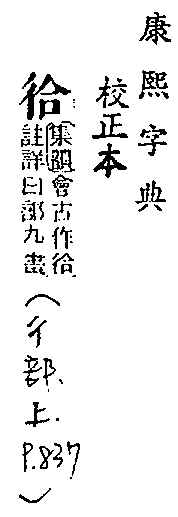 康熙字典
校正本
佮
集韻會古作佮
註詳曰部九畫
(彳部.上.P.837)